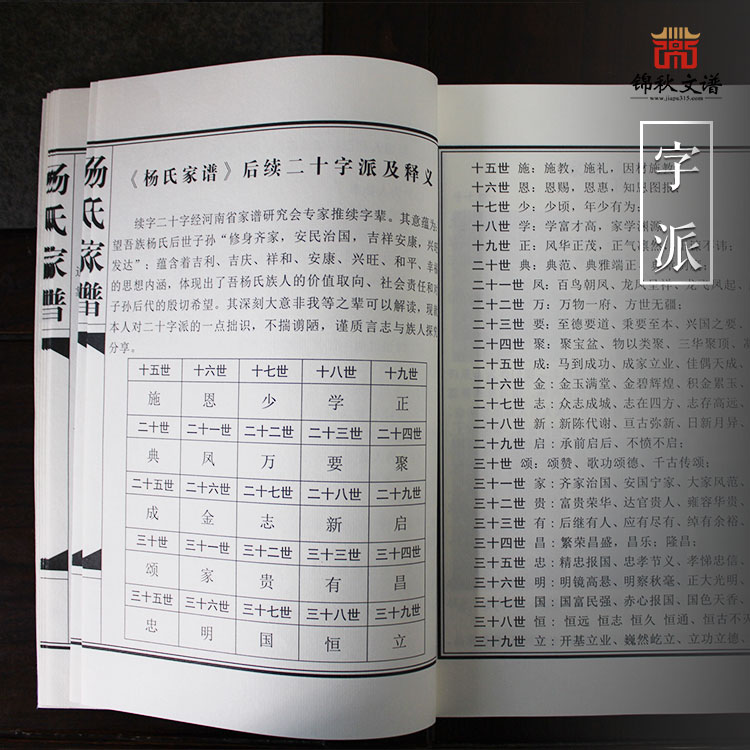 锦秋文谱
www.jiapu315.com
字派
杨氏家谱
杨氏家谱
《杨氏家谱》后续二十字派及释义
续字二十字经河南省家谱研究会专家推续字辈。其意蕴为:
望吾族杨氏后世子孙“修身齐家,安民治国,吉祥安康,兴旺
发达”:蕴含着吉利、吉庆、祥和、安康、兴旺、和平、幸福
的思想内涵,体现出了吾杨氏族人的价值取向、社会责任和对
子孙后代的殷切希望。其深刻大意非我等之辈可以解读,现就
本人对二十字派的一点拙识,不揣谫陋,谨质言志与族人探究
分享。
十五世 十六世 十七世 十八世 十九世
施 恩 少 学 正
二十世 二十一世 二十二世 二十三世 二十四世
典 凤 万 要 聚
二十五世 二十六世 二十七世 二十八世 二十九世
成 金 志 新 启
三十世 三十一世 三十二世 三十三世 三十四世
颂 家 贵 有 昌
三十五世 三十六世 三十七世 三十八世 三十九世
忠 明 国 恒 立
十五世 施:施教,施礼,因材施教
十六世 恩:恩赐,恩惠,知恩图报
十七世 少:少顷,年少有为;
十八世 学:学富才高,家学渊源
十九世 正:风华正茂,正气凛然
二十世 典:典范、典雅端正
二十一世 凤:百鸟朝凤、龙凤
二十二世 万:万物一府、方世无疆;
二十三世 要:至德要道、秉要至本、兴国之要、
二十四世 聚:聚宝盆、物以类聚、三华聚顶、
二十五世 成:马到成功、成家立业、佳偶天成、
二十六世 金:金玉满堂、金碧辉煌、积金累玉、
二十七世 志:众志成城、志在四方、志存高远、
二十八世 新:新陈代谢、亘古弥新、日新月异、
二十九世 启:承前启后、不愤不启;
三十世 颂:颂赞、歌功颂德、千古传颂;
三十一世 家:齐家治国、安国宁家、大家风范、
三十二世 贵:富贵荣华、达官贵人、雍容华贵、
三十三世 有:后继有人、应有尽有、绰有余裕、
三十四世 昌:繁荣昌盛,昌乐;隆昌;
三十五世 忠:精忠报国、忠孝节义、孝悌忠信、
三十六世 明:明镜高悬、明察秋毫、正大光明、
三十七世 国:国富民强、赤心报国、国色天香、
三十八世 恒:恒远 恒志 恒久 恒通、恒古不
三十九世 立:开基立业、巍然屹立、立功立德、